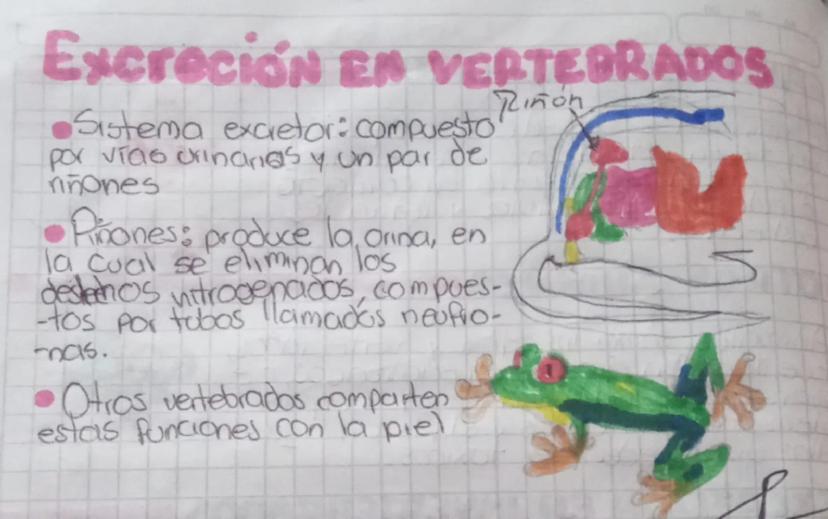 EXCreCIÓN EN VERTEBRADOS
Riñón
• Sistema excretor: compuesto
por vías urinarias y un par de
riñones
• Riñones: produce la orina, en
la cual se eliminan los
desechos nitrogenados, compues-
-tos por tubos llamados
-nas.
• Otros vertebrados comparten
estas funciones con la piel